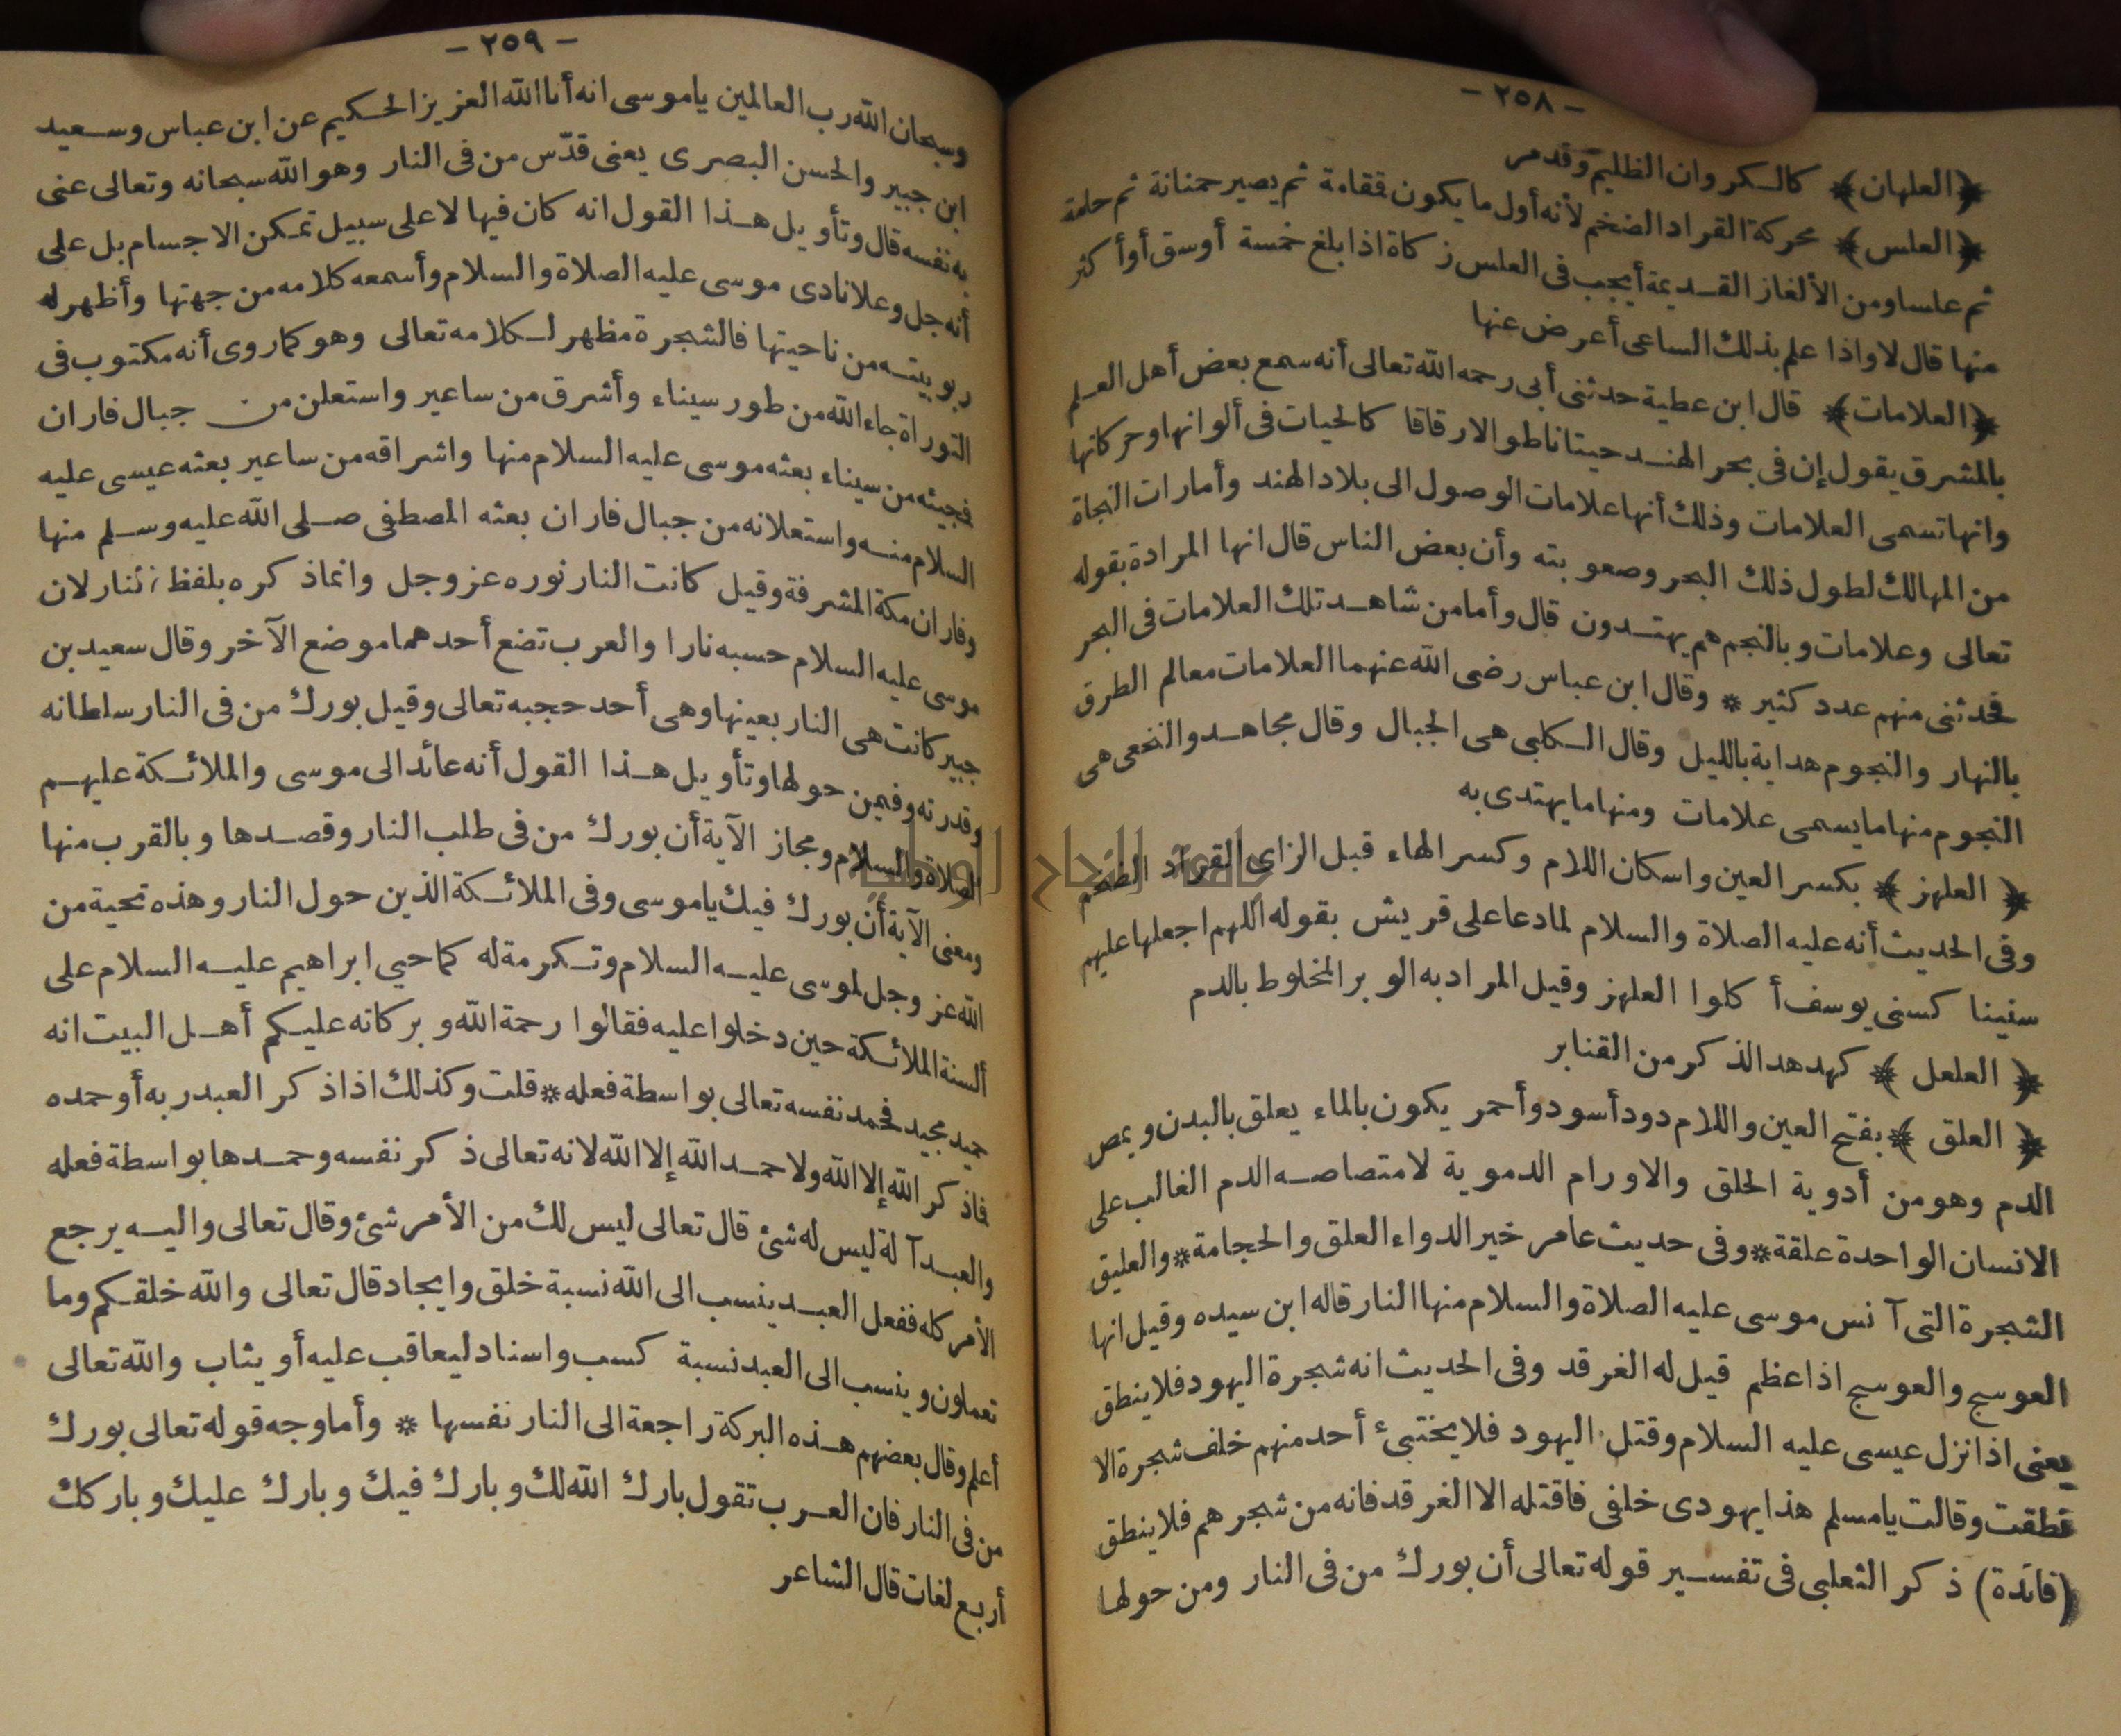 - ٢٥٨ -
﴿العلهان﴾ كالكروان الظليم وقد مر
﴿العلس﴾ محركة القراد الضخم لأنه أول ما يكون قمقامة ثم يصير حمنانة ثم حلمة
ثم علسا ومن الألغاز القديمة أيجب في العلس زكاة اذا بلغ خمسة أوسق أو أكثر
منها قال لا واذا علم بذلك الساعى أعرض عنها
﴿العلامات﴾ قال ابن عطية حدثنى أبى رحمه الله تعالى أنه سمع بعض أهل العلم
بالمشرق يقول إن فى بحر الهند حيتانا طوالا رقاقا كالحيات فى ألوانها وحركاتها
وانها تسمى العلامات وذلك أنها علامات الوصول الى بلاد الهند وأمارات النجاة
من المهالك لطول ذلك البحر وصعوبته وأن بعض الناس قال انها المرادة بقوله
تعالى وعلامات وبالنجم هم يهتدون قال وأما من شاهد تلك العلامات فى البحر
فحدثنى منهم عدد كثير * وقال ابن عباس رضى الله عنهما العلامات معالم الطرق
بالنهار والنجوم هداية بالليل وقال الكلبى هى الجبال وقال مجاهد والنخعى هى
النجوم منها ما يسمى علامات ومنها ما يهتدى به
﴿العلهز﴾ بكسر العين واسكان اللام وكسر الهاء قبل الزاى القراد الضخم
وفى الحديث أنه عليه الصلاة والسلام لما دعا على قريش بقوله اللهم اجعلها عليهم
سنينا كسنى يوسف أكلوا العلهز وقيل المراد به الوبر المخلوط بالدم
﴿العلعل﴾ كهدهد الذكر من القنابر
﴿العلق﴾ بفتح العين واللام دود أسود وأحمر يكون بالماء يعلق بالبدن ويمص
الدم وهو من أدوية الحلق والاورام الدموية لامتصاصه الدم الغالب على
الانسان الواحدة علقة * وفى حديث عامر خير الدواء العلق والحجامة * والعليق
الشجرة التى آنس موسى عليه الصلاة والسلام منها النار قاله ابن سيده وقيل انها
العوسج والعوسج اذا عظم قيل له الغرقد وفى الحديث انه شجرة اليهود فلا ينطق
يعنى اذا نزل عيسى عليه السلام وقتل اليهود فلا يختبئ أحد منهم خلف شجرة الا
نطقت وقالت يا مسلم هذا يهودى خلفى فاقتله الا الغرقد فانه من شجرهم فلا ينطق
(فائدة) ذكر الثعلبى فى تفسير قوله تعالى أن بورك من فى النار ومن حولها
- ٢٥٩ -
وسبحان الله رب العالمين ياموسى انه أنا الله العزيز الحكيم عن ابن عباس وسعيد
ابن جبير والحسن البصرى يعنى قدّس من فى النار وهو الله سبحانه وتعالى عنى
به نفسه قال وتأويل هذا القول انه كان فيها لا على سبيل تمكن الاجسام بل على
أنه جل وعلا نادى موسى عليه الصلاة والسلام وأسمعه كلامه من جهتها وأظهر له
ربوبيته من ناحيتها فالشجرة مظهر لكلامه تعالى وهو كما روى أنه مكتوب فى
التوراة جاء الله من طور سيناء وأشرق من ساعير واستعلن من جبال فاران
فجيئه من سيناء بعثه موسى عليه السلام منها واشراقه من ساعير بعثه عيسى عليه
السلام منه واستعلانه من جبال فاران بعثه المصطفى صلى الله عليه وسلم منها
وفاران مكة المشرفة وقيل كانت النار نوره عز وجل وانما ذكره بلفظ النار لان
موسى عليه السلام حسبه نارا والعرب تضع أحدهما موضع الآخر وقال سعيد بن
جبير كانت هى النار بعينها وهى أحد حجبه تعالى وقيل بورك من فى النار سلطانه
وقدرته وفيمن حولها وتأويل هذا القول أنه عائد الى موسى والملائكة عليهم
الصلاة والسلام ومجاز الآية أن بورك من فى طلب النار وقصدها وبالقرب منها
ومعنى الآية أن بورك فيك ياموسى وفى الملائكة الذين حول النار وهذه تحية من
الله عز وجل لموسى عليه السلام وتكرمة له كما حيي ابراهيم عليه السلام على
ألسنة الملائكة حين دخلوا عليه فقالوا رحمة الله وبركاته عليكم أهل البيت انه
حميد مجيد فحمد نفسه تعالى بواسطة فعله * قلت وكذلك اذا ذكر العبد ربه أو حمده
فما ذكر الله إلا الله ولا حمد الله إلا الله لانه تعالى ذكر نفسه وحمدها بواسطة فعله
والعبد آلة ليس له شئ قال تعالى ليس لك من الأمر شئ وقال تعالى واليه يرجع
الأمر كله ففعل العبد ينسب الى الله نسبة خلق وايجاد قال تعالى والله خلقكم وما
تعملون وينسب الى العبد نسبة كسب واسناد ليعاقب عليه أو يثاب والله تعالى
أعلم وقال بعضهم هذه البركة راجعة الى النار نفسها * وأما وجه قوله تعالى بورك
من فى النار فان العرب تقول بارك الله لك وبارك فيك وبارك عليك وباركك
أربع لغات قال الشاعر
جامعة النجاح الوطنية